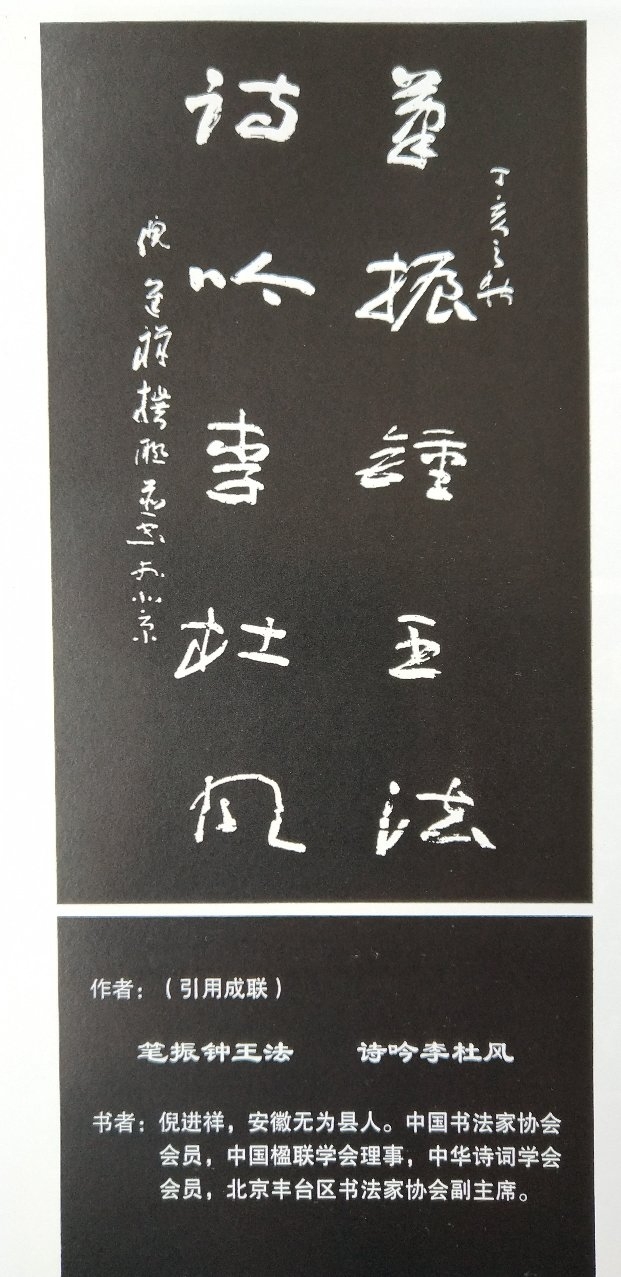 丁亥之秋
筆振鍾王法
詩吟李杜風
倪進祥撰聯并書於北京
作者：（引用成联）
笔振钟王法 诗吟李杜风
书者：倪进祥，安徽无为县人。中国书法家协会
会员，中国楹联学会理事，中华诗词学会
会员，北京丰台区书法家协会副主席。